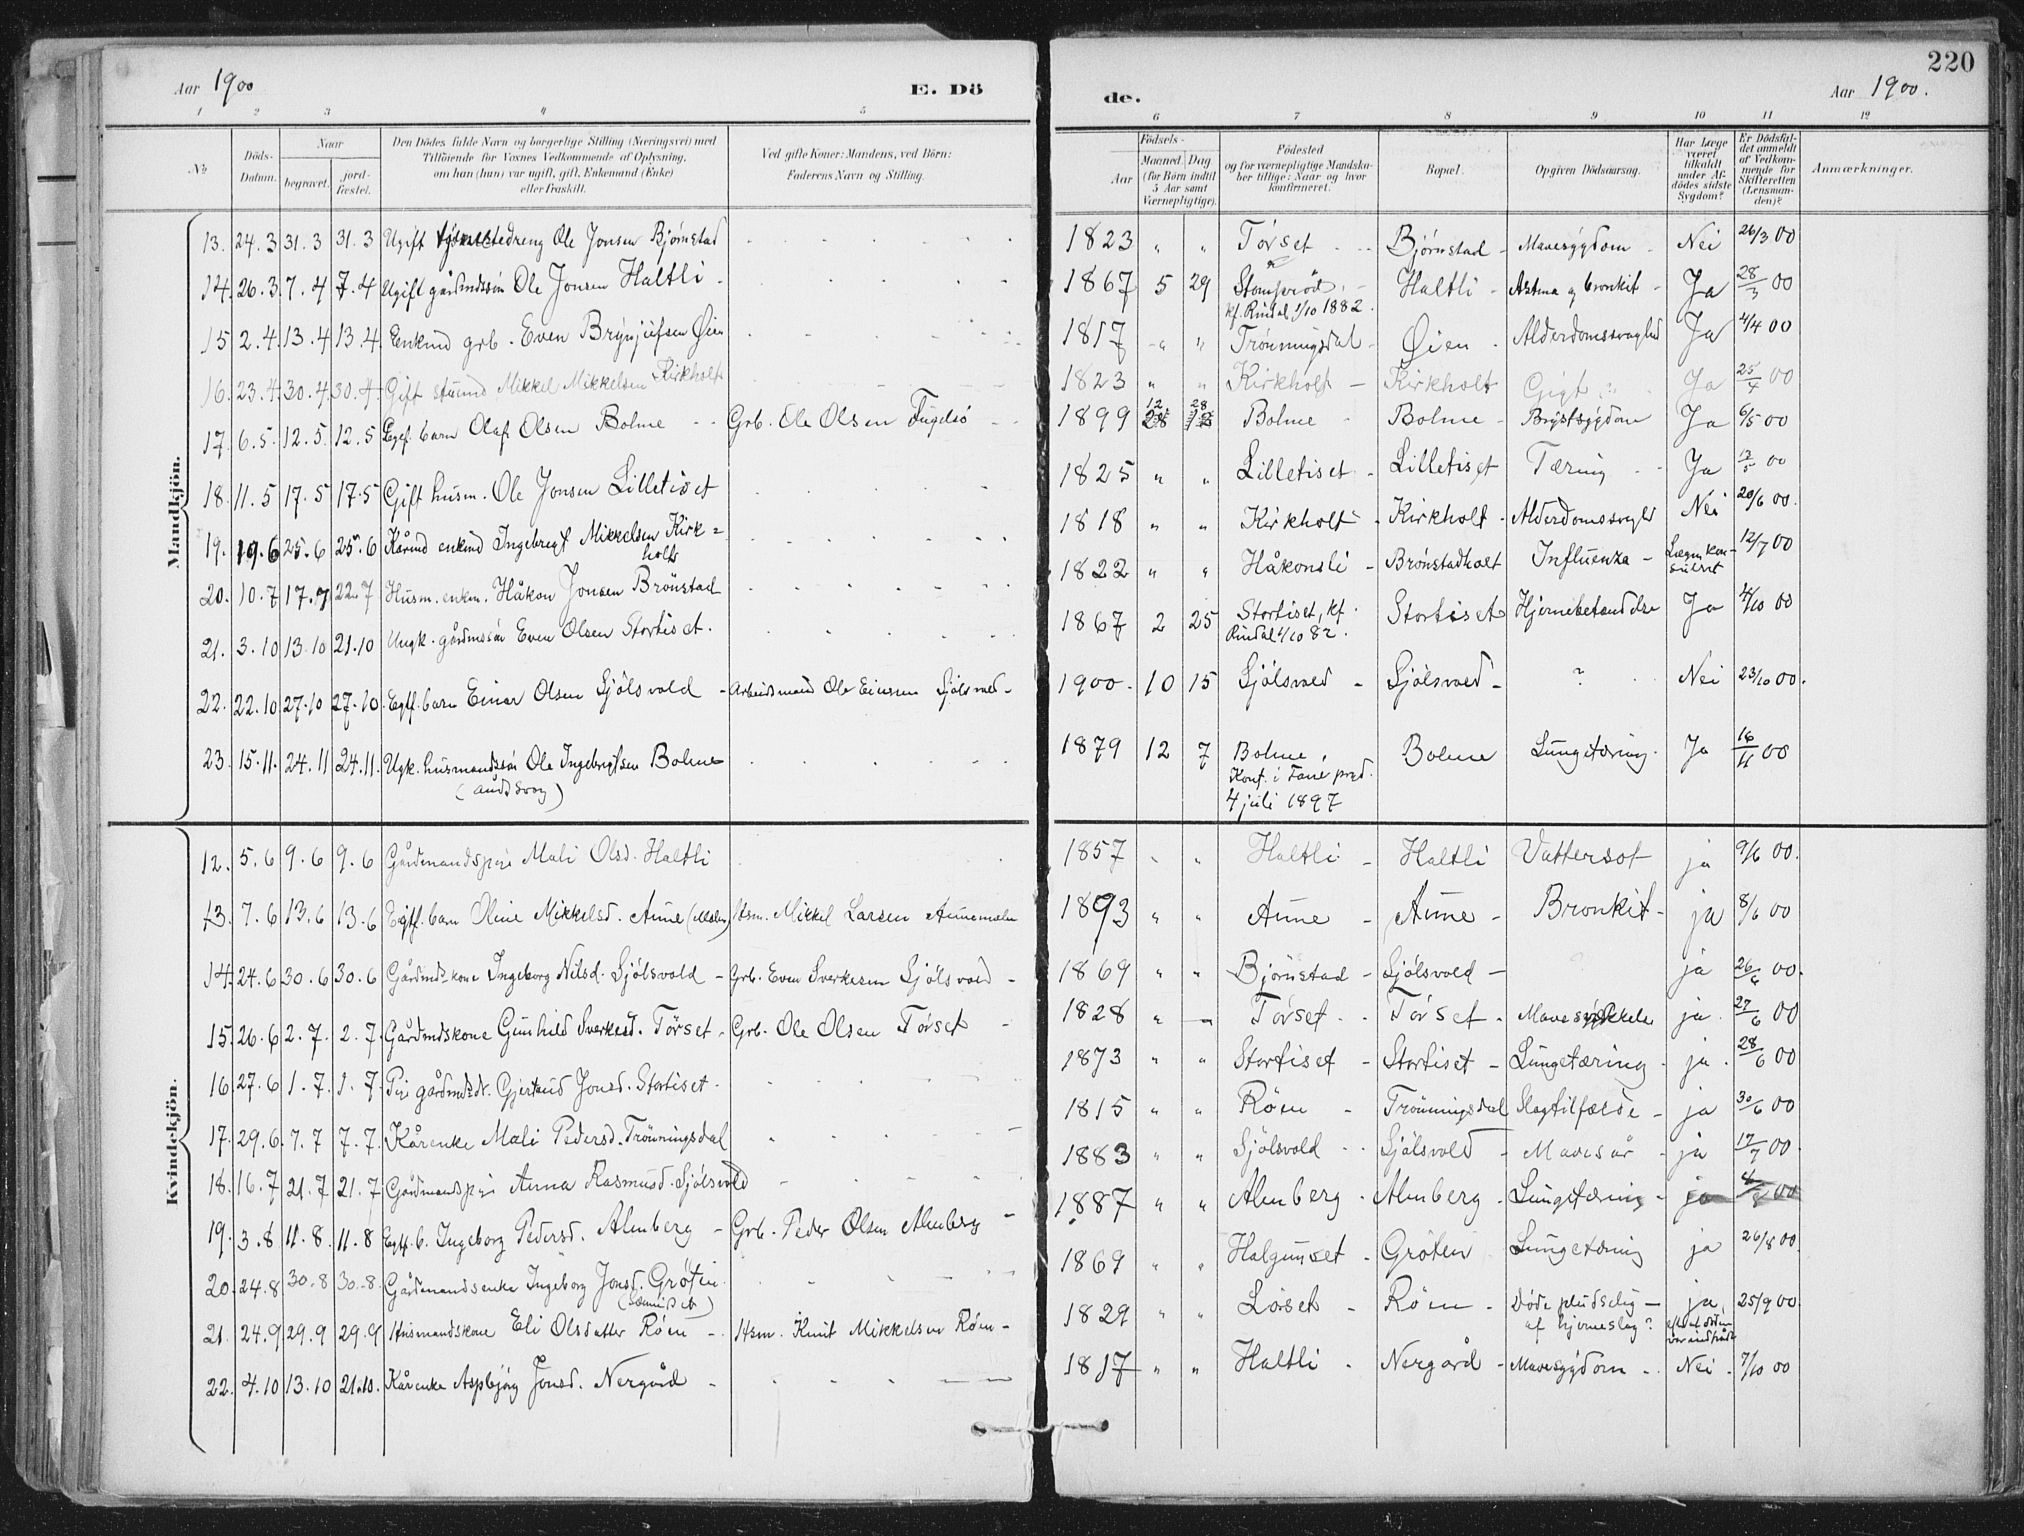 220
Aar 1900
E. Dö
de.
Aar 1900.
1 2 3 4 5 6 7 8 9 10 11 12
No
Döds-Datum.
Naar
begravet.
jord-fæstet.
Den Dödes fulde Navn og borgerlige Stilling (Næringsvei) med
Tilföiende for Voxnes Vedkommende af Oplysning,
om han (hun) var ugift, gift, Enkemand (Enke)
eller fraskilt.
Ved gifte Koner: Mandens, ved Börn:
Faderens Navn og Stilling.
Födsels-
Aar
Maaned Dag
(for Börn indtil
5 Aar samt
Værnepligtige).
Födested
og for værnepligtige Mandska-
ber tillige: Naar og hvor
konfirmeret.
Bopæl.
Opgiven Dödsaarsag.
Har Læge
været
tilkaldt
under Af-
dödes sidste
Sygdom?
Er Dödsfal-
det anmeldt
af Vedkom-
mende for
Skifteretten
(Lensman-
den)?
Anmærkninger.
Mandkjön.
13. 24.3 31.3 31.3 Ugift Ole Jonsen Bjørnstad 1823 " " Tørset Bjørnstad Mavesygdom Nei 26/3 00
14. 26.3 7.4 7.4 Ugift gårdmdssøn Ole Jonsen Haltli 1867 5 29 Haltli Astma og bronkit Ja 28/3 00
kf. Rindal 1/10 1882.
15 2.4 13.4 13.4 Enkmd grb. Even Øien 1817 " " Trønningsdal Øien Alderdomssvaghed Ja 4/4 00
16. 23.4 30.4 30.4 Gift Mikkel Mikkelsen Kirkholt 1823 " " Kirkholt Kirkholt Gigt? Ja 25/4 00
17. 6.5 12.5 12.5 Egtf. barn Olaf Olsen Bolme Grb. Ole Olsen Fugelsø 1899 12 28 Bolme Bolme Brystsygdom Ja 6/5 00
18. 11.5 17.5 17.5 Gift husm. Ole Jonsen Lilletiset 1825 " " Lilletiset Lilletiset Tæring Ja 12/5 00
19. 19.6 25.6 25.6 Kårmd enkmd Ingebrigt Mikkelsen Kirk=
holt 1818 " " Kirkholt Kirkholt Alderdomssvaghd Nei 20/6 00.
20. 10.7 17.7 22.7 Husm. enkm. Håkon Jonsen Brønstad 1822 " " Håkonsli Brønstadholt Influenza Lægen kon-
sulret 12/7 00
21. 3.10 13.10 21.10 Ungk. gårdmssøn Even Olsen Stortiset. 1867 2 25 Stortiset, kf. Stortiset Hjernebetændelse Ja 4/10 00
Rindal 1/10 82.
22. 22.10 27.10 27.10. Egtf. barn Einar Olsen Sjølsvold Arbeidsmand Ole Einsen Sjølsvold 1900. 10 15 Sjølsvold Sjølsvold ? Nei 23/10 00.
23. 15.11. 24.11 24.11. Ugk. husmandssøn Ole Ingebrigtsen Bolme 1879 12 7 Bolme, Bolme Lungetæring. Ja 16/11 00
(åndssvag) Konf. i Fane præd.
4 juli 1897
Kvindekjön.
12. 5.6 9.6 9.6 Gårdmandspige Mali Olsd. Haltli 1857 " " Haltli Haltli Vattersot ja 9/6 00.
13. 7.6 13.6 13.6 Egtf. barn Oline Mikkelsd. Aune (Moen) Hsm. Mikkel Larsen Aunemoen 1893 " " Aune Aune Bronkit ja 8/6 00
14. 24.6 30.6 30.6 Gårdmdskone Ingeborg Nilsd. Sjølsvold Grb. Even Sverkesen Sjølsvold 1869 " " Bjørnstad Sjølsvold ja 26/6 00.
15 26.6 2.7. 2.7 Gårdmdskone Gunhild Sverkesd. Tørset Grb. Ole Olsen Tørset 1828 " " Tørset Tørset ja 27/6 00
16. 27.6 1.7. 1.7 Pige gårdmdsdt. Gjertrud Jonsd. Stortiset 1873 " " Stortiset Stortiset Lungetæring ja. 28/6 00
17. 29.6 7.7 7.7. Kårenke Mali Pedersd. Trønningsdal 1815 " " Røen Trønningsdal Slagtilfælde ja 30/6 00
18. 16.7 21.7 21.7 Gårdmandspige Anna Rasmusd. Sjølsvold 1883 " " Sjølsvold Sjølsvold Mavesår ja 17/7 00
19. 3.8 11.8. 11.8 Egtf. b. Ingeborg Pedersd. Almberg Grb. Peder Olsen Almberg 1887 " " Almberg Almberg Lungetæring ja 00
20. 24.8 30.8 30.8. Gårdmandsenke Ingeborg Jonsd. Grøten 1869 " " Halgunset Grøten Lungetæring ja 26/8 00.
21. 24.9 29.9 29.9 Husmandskone Eli Olsdatter Røen Hsm. Knut Mikkelsen Røen 1829 " " Løset Røen Døde pludselig ja, 25/9 00
af hjerneslag? efter at døden
var indtrådt
22. 4.10 13.10 21.10. Kårenke Aspbjørg Jonsd. Nergård 1817 " " Haltli Nergård Mavesygdom Nei 7/10 00